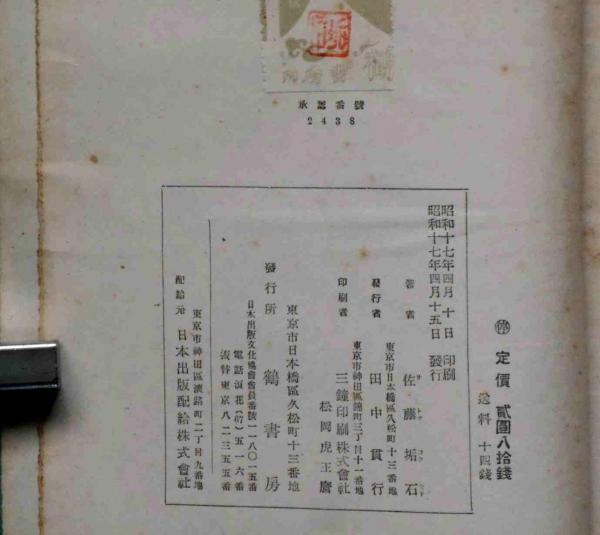 承認番號
2438
㊞ 定價 貳圓八拾錢
送料 十四錢
昭和十七年四月十日 印刷
昭和十七年四月十五日 發行
著者 佐藤垢石
東京市日本橋區久松町十三番地
發行者 田中貫行
東京市神田區錦町三丁目十一番地
三鐘印刷株式會社
印刷者 松岡虎王麿
東京市日本橋區久松町十三番地
發行所 鶴書房
日本出版文化協會會員番號一一八〇一五番
電話浪花(67)五一一六番
振替東京八二三五五番
東京市神田區淡路町二丁目九番地
配給元 日本出版配給株式會社